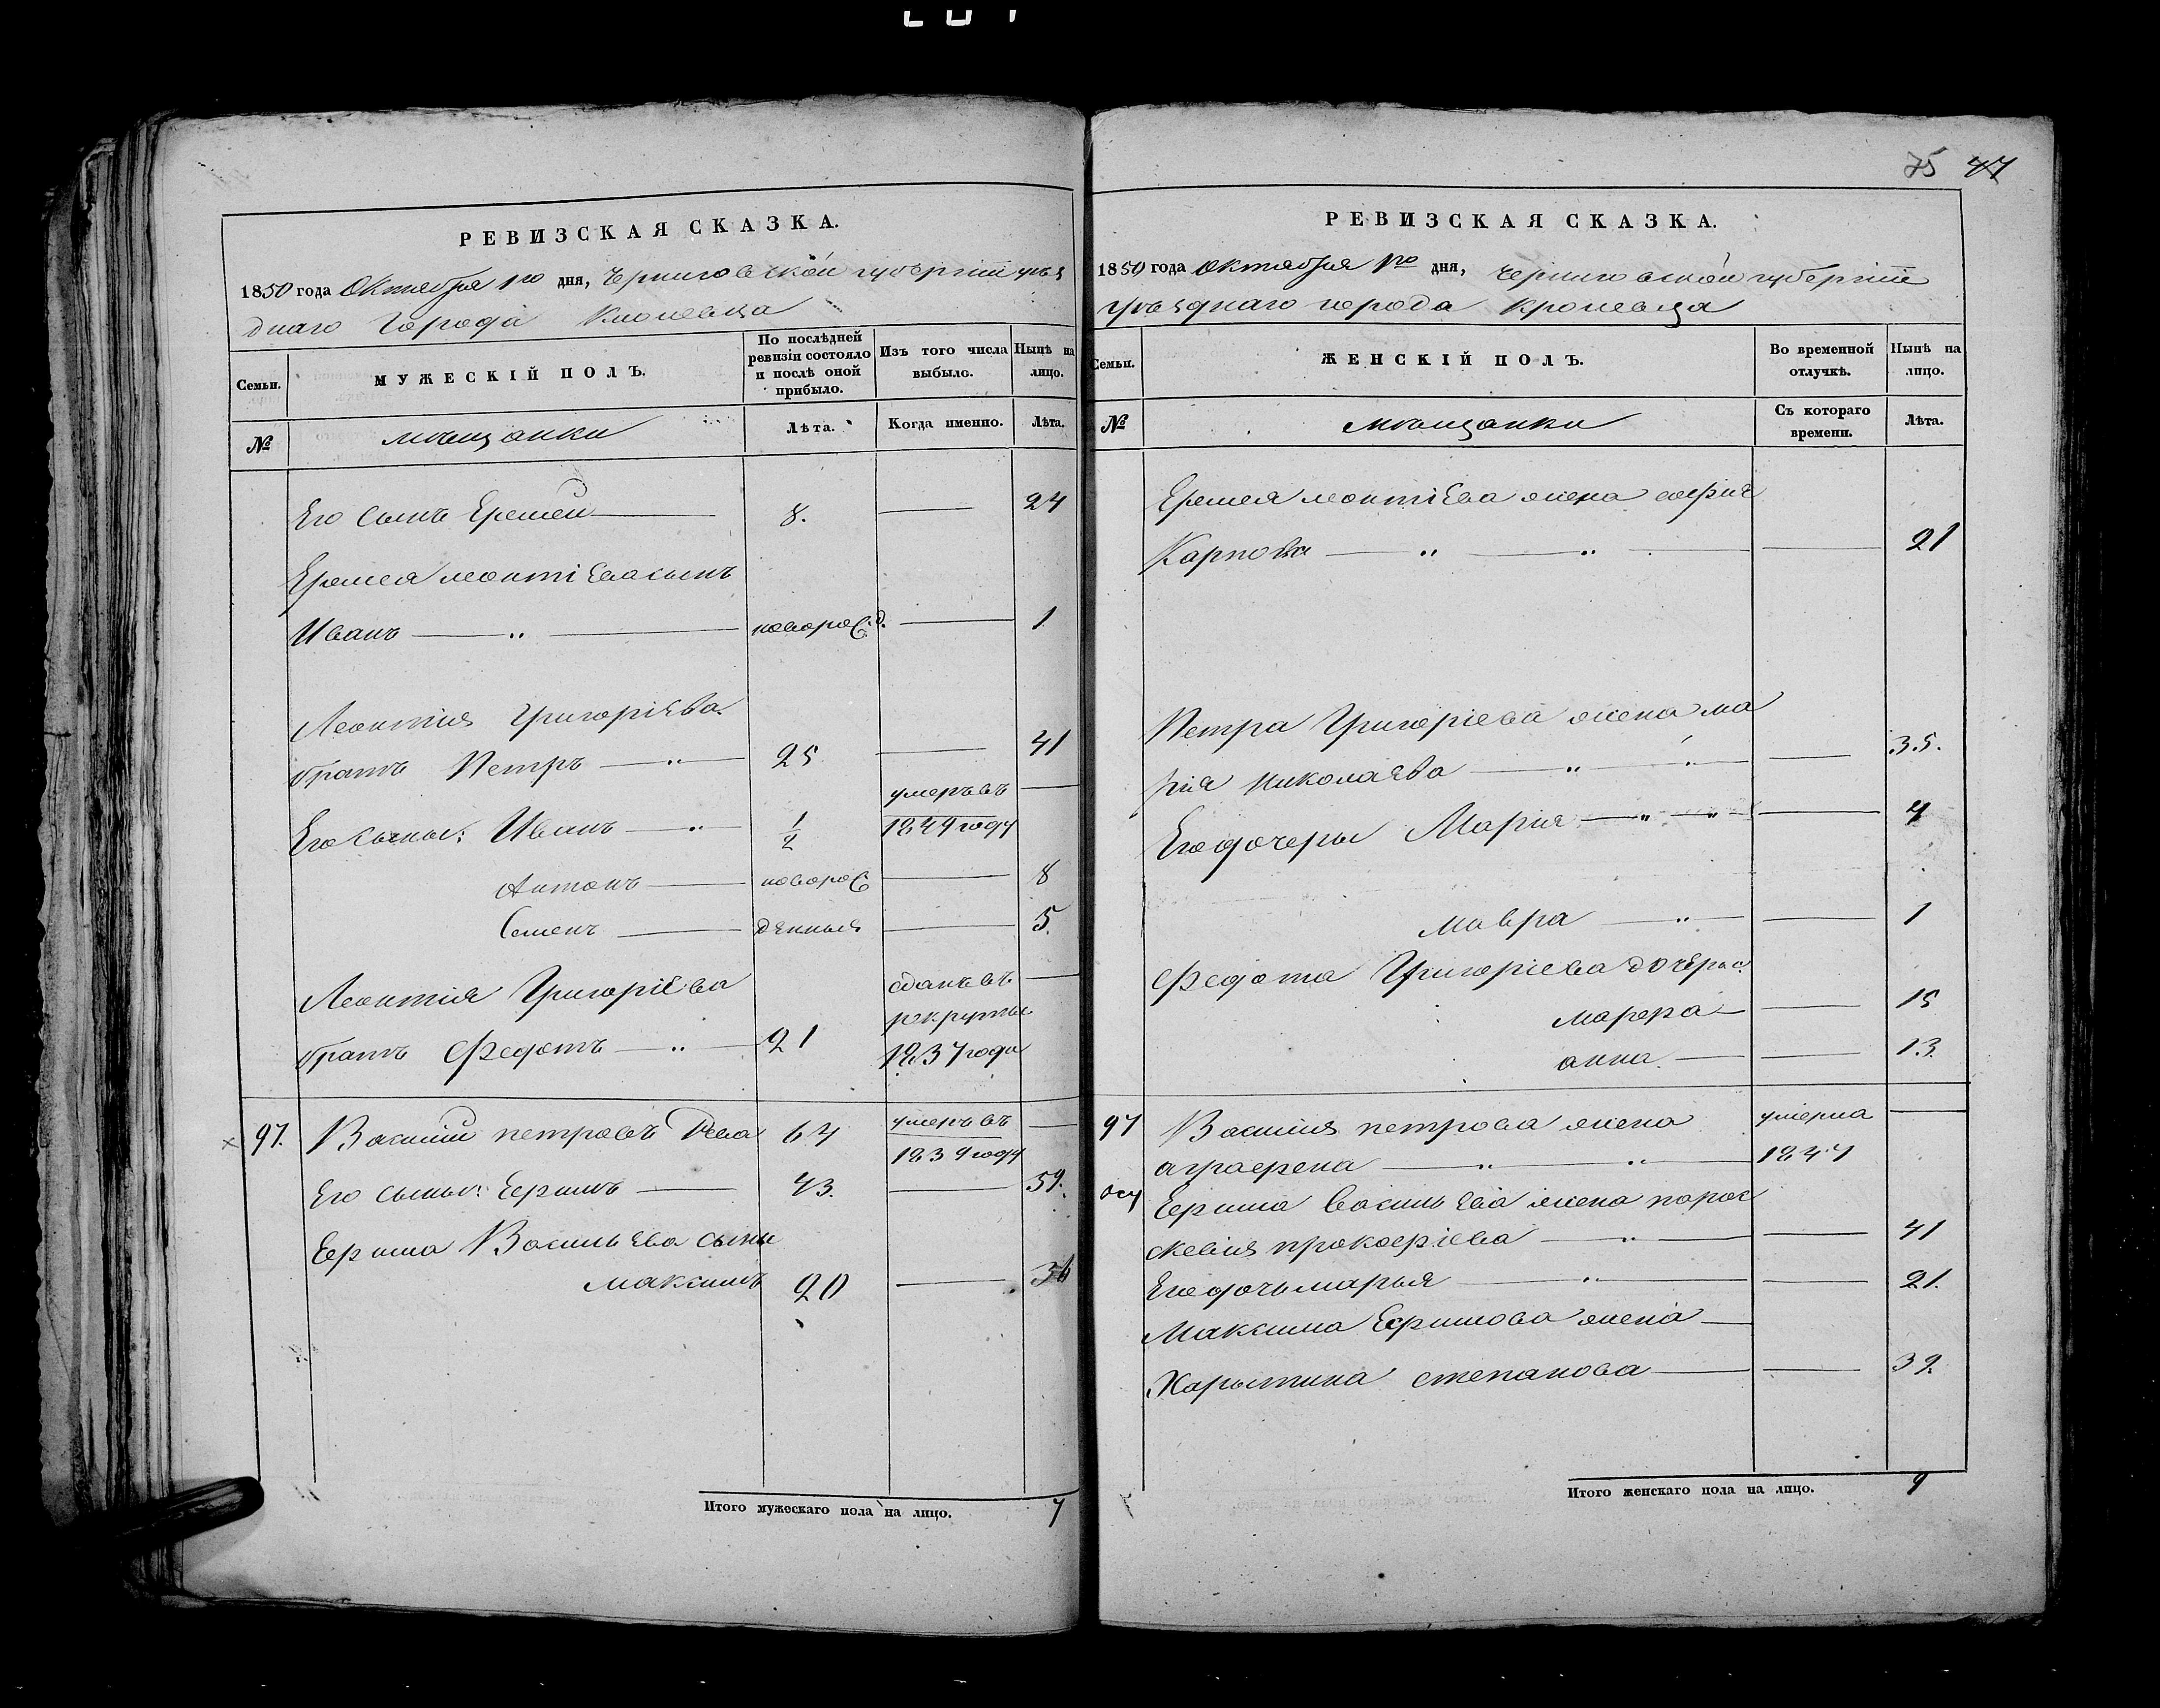 75 77
РЕВИЗСКАЯ СКАЗКА.
1850 года Октября 1го дня, Черниговской губерніи уѣз
днаго города Кролевца
Семьи.
МУЖЕСКІЙ ПОЛЪ.
По послѣдней ревизіи состояло и послѣ оной прибыло.
Изъ того числа выбыло.
Нынѣ на лицо.
№
мѣщанки
Лѣта.
Когда именно.
Лѣта.
Его сынъ Еремей 8. 24
Еремея леонтіева сынъ
Иванъ „ новорож.д. 1
Леонтія Григоріева
братъ Петръ „ 25 41
Его сыны: Иванъ „ 1/2 умеръ въ 1849 году
Антонъ новорож 8
Семенъ денныя 5.
Леонтія Григоріева
братъ Федотъ „ 21 сданъ въ рекруты 1837 года
97. Василій петровъ Рева 64 умеръ въ 1839 году
Его сынъ: Ефимъ 43. 59.
Ефима Васильева сыны
максимъ 20 36
Итого мужескаго пола на лицо. 7
РЕВИЗСКАЯ СКАЗКА.
1850 года Октября 1го дня, Черниговской губерніи
уѣзднаго города Кролевца
Семьи.
ЖЕНСКІЙ ПОЛЪ.
Во временной отлучкѣ.
Нынѣ на лицо.
№
мѣщанки
Съ котораго времени.
Лѣта.
Еремея леонтіева жена софія
Карпова „ „ 21
Петра Григоріева жена ма
рія николаева „ „ 35.
Его дочеры Марія „ „ 4
мавра „ 1
Федота Григоріева дочеры:
марфа 15
анна 13.
97 Василія петрова жена умерла
аграфена „ „ 1847
Ефима васильева жена парас
кевія прокофіева „ 41
Его дочь марья „ 21.
Максима Ефимова жена
Харытина степанова 32
Итого женскаго пола на лицо. 9